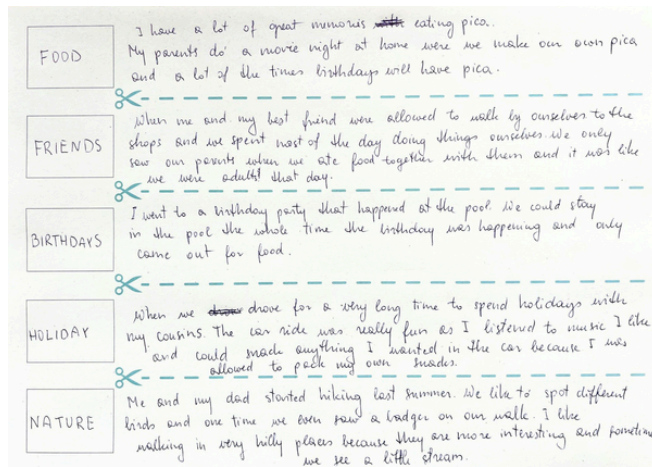 FOOD
I have a lot of great memoris eating pica.
My parents do a movie night at home were we make our own pica
and a lot of the times birthdays will have pica.
FRIENDS
When me and my best friend were allowed to walk by ourselves to the
shops and we spent most of the day doing things ourselves. We only
saw our parents when we ate food together with them and it was like
we were adults that day.
BIRTHDAYS
I went to a birthday party that happened at the pool. We could stay
in the pool the whole time the birthday was happening and only
came out for food.
HOLIDAY
When we drove for a very long time to spend holidays with
my cousins. The car ride was really fun as I listened to music I like
and could snack anything I wanted in the car because I was
allowed to pack my own snacks.
NATURE
Me and my dad started hiking last summer. We like to spot different
birds and one time we even saw a badger on our walk. I like
walking in very hilly places because they are more interesting and sometime
we see a little stream.